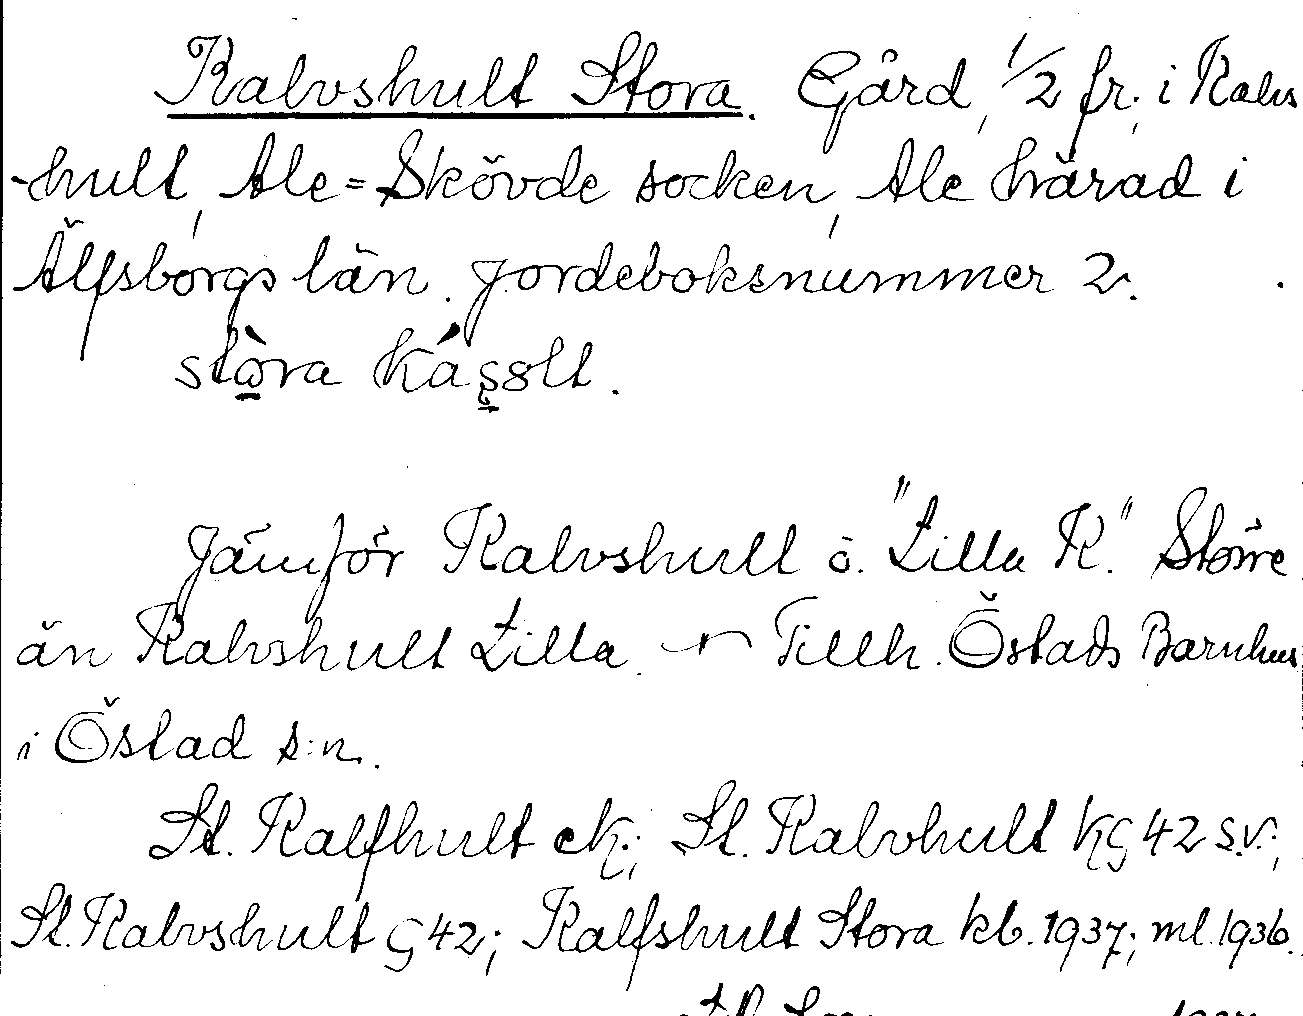 Kalvshult Stora. Gård, 1/2 fr., i Kalvs
-hult, Ale=Skövde socken, Ale härad i
Älfsborgs län. Jordeboksnummer 2.
stòra kásslt.
Jämför Kalvshult o. "Lilla K." Större
än Kalvshult Lilla. Tillh. Östads Barnhus
i Östad s:n.
St. Kalfhult ek.; St. Kalvhult KG 42 s.v.;
St. Kalvshult G 42; Kalfshult Stora kb. 1937; ml. 1936.